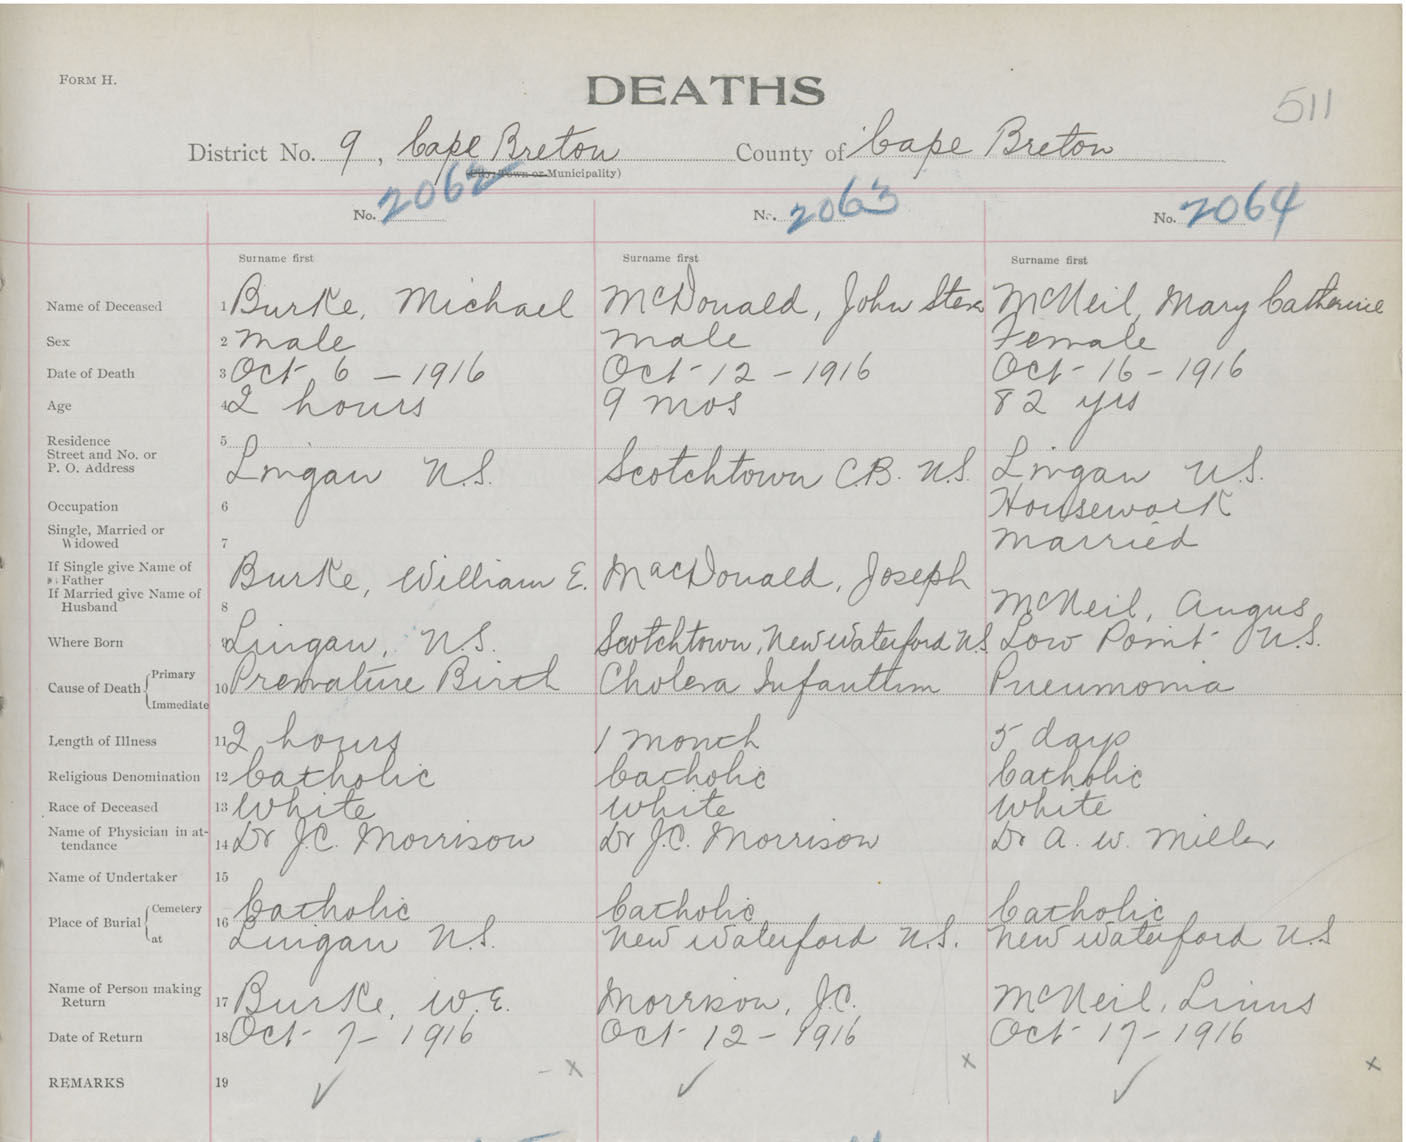 FORM H.
DEATHS
511
District No. 9, Cape Breton County of Cape Breton
(City, Town or Municipality)
No. 2062 No. 2063 No. 2064
Surname first Surname first Surname first
Name of Deceased 1 Burke, Michael McDonald, John Steve McNeil, Mary Catherine
Sex 2 male male Female
Date of Death 3 Oct 6 - 1916 Oct - 12 - 1916 Oct - 16 - 1916
Age 4 2 hours 9 mos 82 yrs
Residence 5
Street and No. or
P. O. Address Lingan N.S. Scotchtown C.B. N.S. Lingan N.S.
Occupation 6 Housework
Single, Married or
Widowed 7 married
If Single give Name of
Father Burke, William E. MacDonald, Joseph
If Married give Name of
Husband 8 McNeil, Angus
Where Born 9 Lingan, N.S. Scotchtown, New Waterford N.S. Low Point N.S.
Cause of Death Primary 10 Premature Birth Cholera Infantum Pneumonia
Immediate
Length of Illness 11 2 hours 1 month 5 days
Religious Denomination 12 Catholic Catholic Catholic
Race of Deceased 13 White White White
Name of Physician in at-
tendance 14 Dr J.C. Morrison Dr J.C. Morrison Dr A. W. Miller
Name of Undertaker 15
Place of Burial Cemetery 16 Catholic Catholic Catholic
at Lingan N.S. New Waterford N.S. New Waterford N.S
Name of Person making
Return 17 Burke, W.E. Morrison, J.C. McNeil, Linus
Date of Return 18 Oct - 7 - 1916 Oct - 12 - 1916 Oct - 17 - 1916
REMARKS 19 ✓ - x ✓ x ✓ x